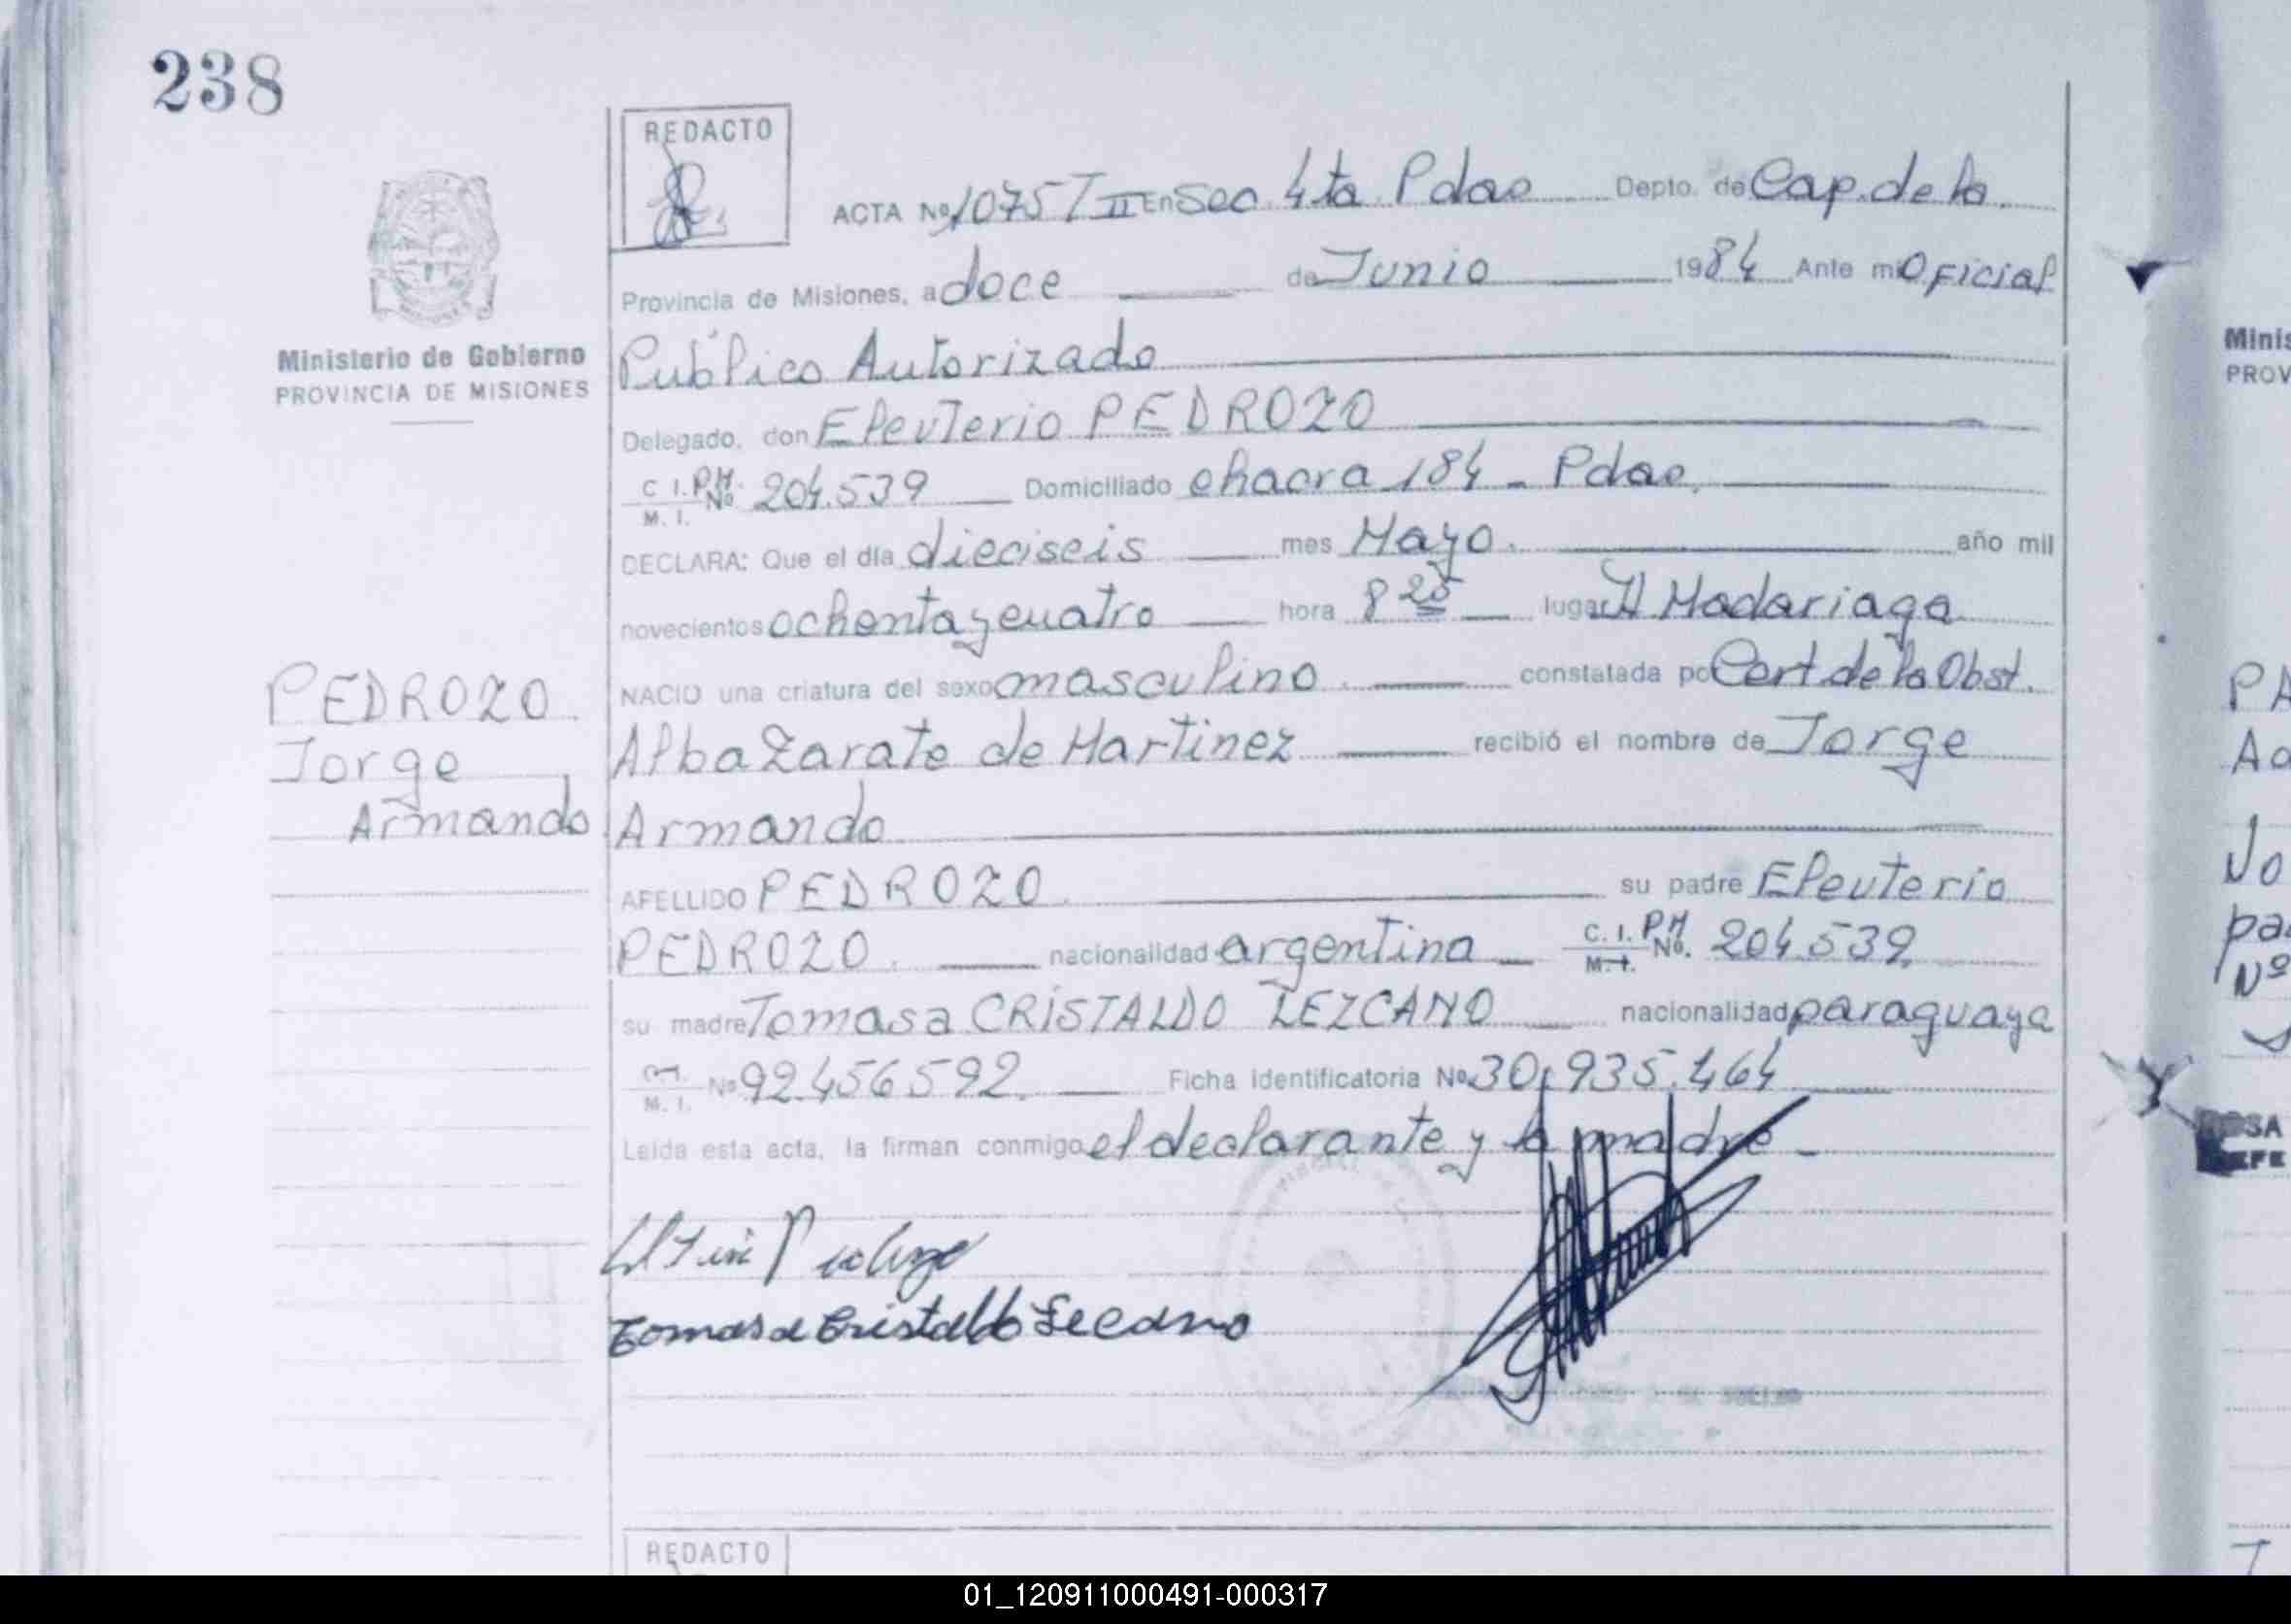 238
REDACTO
ACTA Nº 1075 T II En Sec. 4ta. Pdas Depto. de Cap. de la
Provincia de Misiones, a doce de Junio 1984 Ante mi Oficial
Ministerio de Gobierno
PROVINCIA DE MISIONES
Público Autorizado
Delegado, don Eleuterio PEDROZO
C I. P.M. Nº 204.539 Domiciliado chacra 184 - Pdas.
M. I.
DECLARA: Que el día dieciseis mes Mayo. año mil
novecientos ochenta y cuatro hora 8 25 lugar H Madariaga
NACIO una criatura del sexo masculino. constatada po Cert. de la Obst.
Alba Zarate de Martinez recibió el nombre de Jorge
Armando
PEDROZO
Jorge
Armando
APELLIDO PEDROZO. su padre Eleuterio
PEDROZO. nacionalidad argentina C. I. PM No. 204.539
M. I.
su madre Tomasa CRISTALDO LEZCANO nacionalidad paraguaya
C. I. Nº 92.456592.
M. I.
Ficha identificatoria Nº 30.935.464
Leída esta acta, la firman conmigo el declarante y la madre -
Tomasa Cristaldo Lecano
REDACTO
Minis
PROV
PA
Jo
pa
Nº
01_120911000491-000317